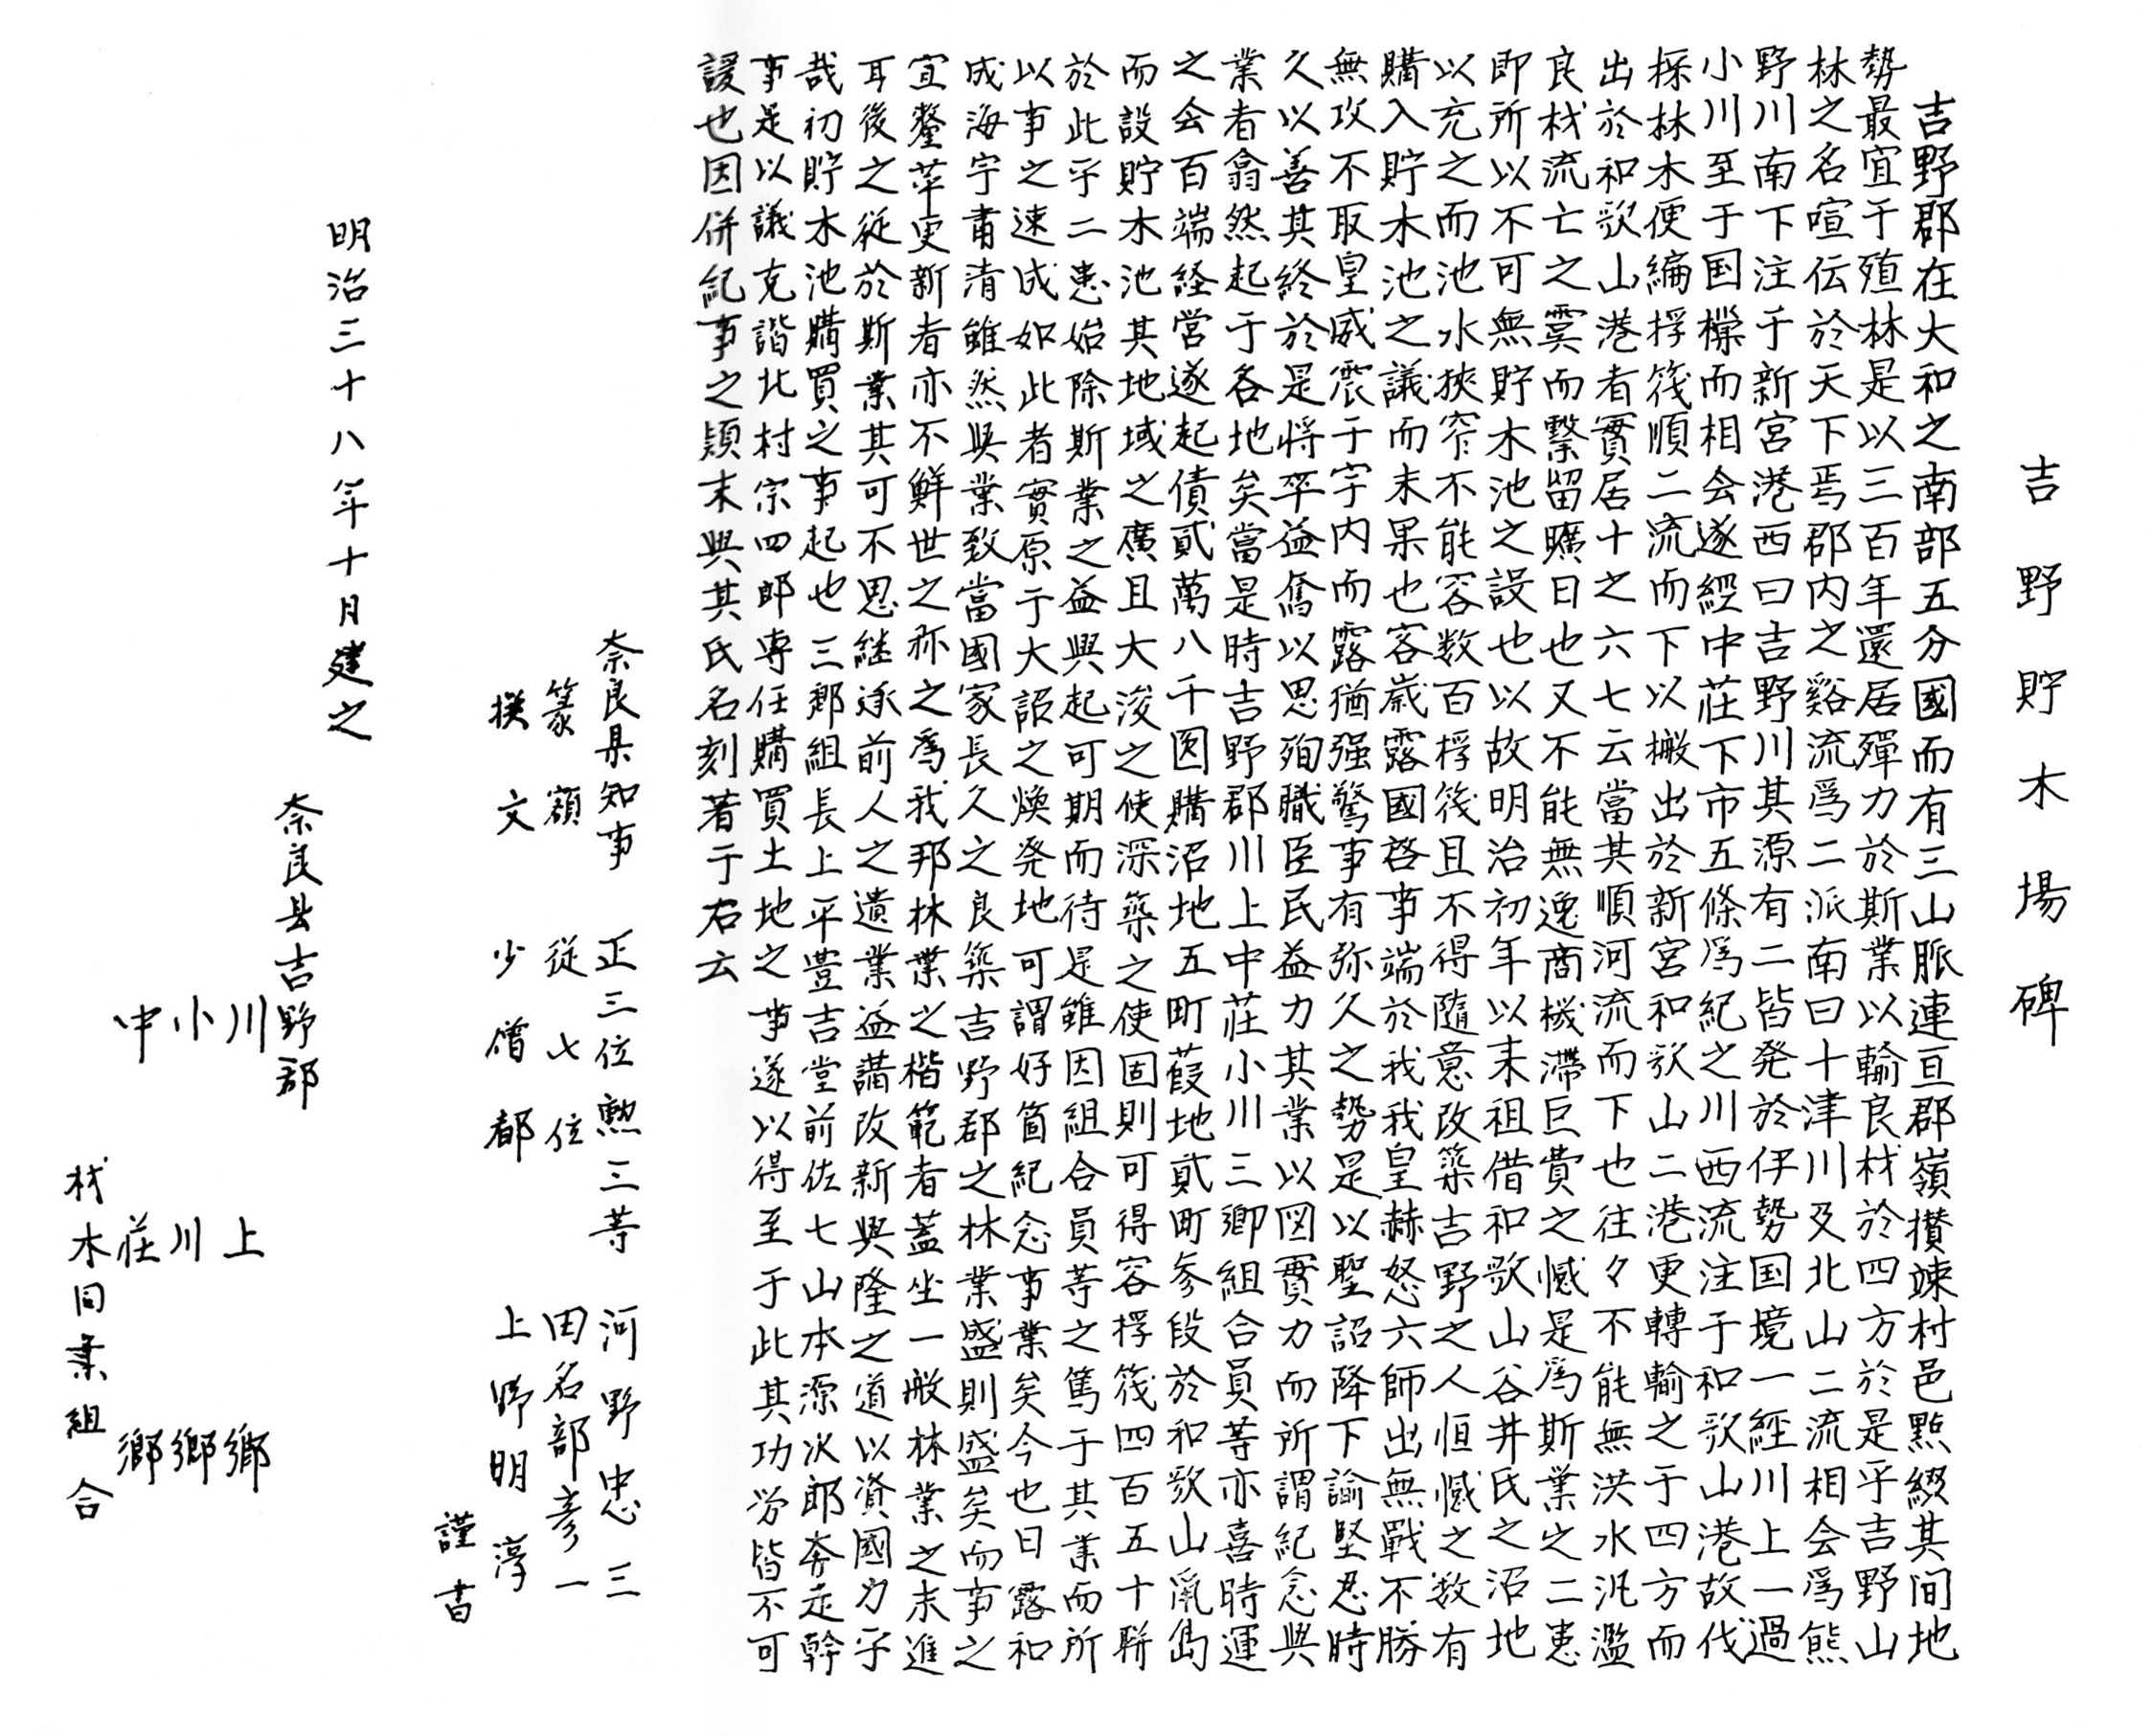 吉野貯木場碑
吉野郡在大和之南部五分國而有三山脈連亘郡嶺攅竦村邑點綴其间地
勢最宜于殖林是以三百年還居殫力於斯業以輸良材於四方於是乎吉野山
林之名喧伝於天下焉郡内之谿流爲二派南曰十津川及北山二流相会爲熊
野川南下注于新宮港西曰吉野川其源有二皆発於伊勢国境一經川上一過
小川至于国樔而相会遂經中荘下市五條爲紀之川西流注于和歌山港故伐
採林木便編桴筏順二流而下以搬出於新宮和歌山二港更轉輸之于四方而
出於和歌山港者實居十之六七云當其順河流而下也往々不能無洪水汎濫
良材流亡之霙而繋留曠日也又不能無逸商機滞巨費之憾是爲斯業之二患
即所以不可無貯木池之設也以故明治初年以来祖借和歌山谷井氏之沼地
以充之而池水狹窄不能容数百桴筏且不得隨意改築吉野之人恒憾之数有
購入貯木池之議而未果也客歳露國啓事端於我我皇赫怒六師出無戰不勝
無攻不取皇威震于宇内而露猶强驁事有弥久之勢是以聖詔降下諭堅忍時
久以善其終於是将卒益奮以思殉職臣民益力其業以図實力而所謂紀念與
業者翕然起于各地矣當是時吉野郡川上中荘小川三郷組合員等亦喜時運
之会百端経営遂起債貳萬八千圓購沼地五町葭地貳町参段於和歌山禹島
而設貯木池其地域之廣且大浚之使深築之使固則可得容桴筏四百五十聨
於此乎二患始除斯業之益興起可期而待是雖因組合員等之篤于其業而所
以事之速成如此者實原于大詔之煥発地可謂好箇紀念事業矣今也日露和
成海宇甫清雖然與業致當國家長久之良築吉野郡之林業盛則盛矣而事之
宜釐革更新者亦不鮮世之称之爲我邦林業之楷範者蓋坐一般林業之未進
耳後之從於斯業其可不思継承前人之遺業益講改新興隆之道以資國力乎
哉初貯木池購買之事起也三郷組長上平豊吉堂前佐七山本源次郎奔走幹
事是以議克諧北村宗四郎専任購買土地之事遂以得至于此其功労皆不可
諼也因併紀事之顛末與其氏名刻著于石云
奈良県知事　正三位勲三等　河野忠三
篆額　従七位　田名部彦一
撰文　少僧都　上野明淳
謹書
明治三十八年十月建之
奈良县吉野郡
川上郷
小川郷
中荘郷
材木同業組合